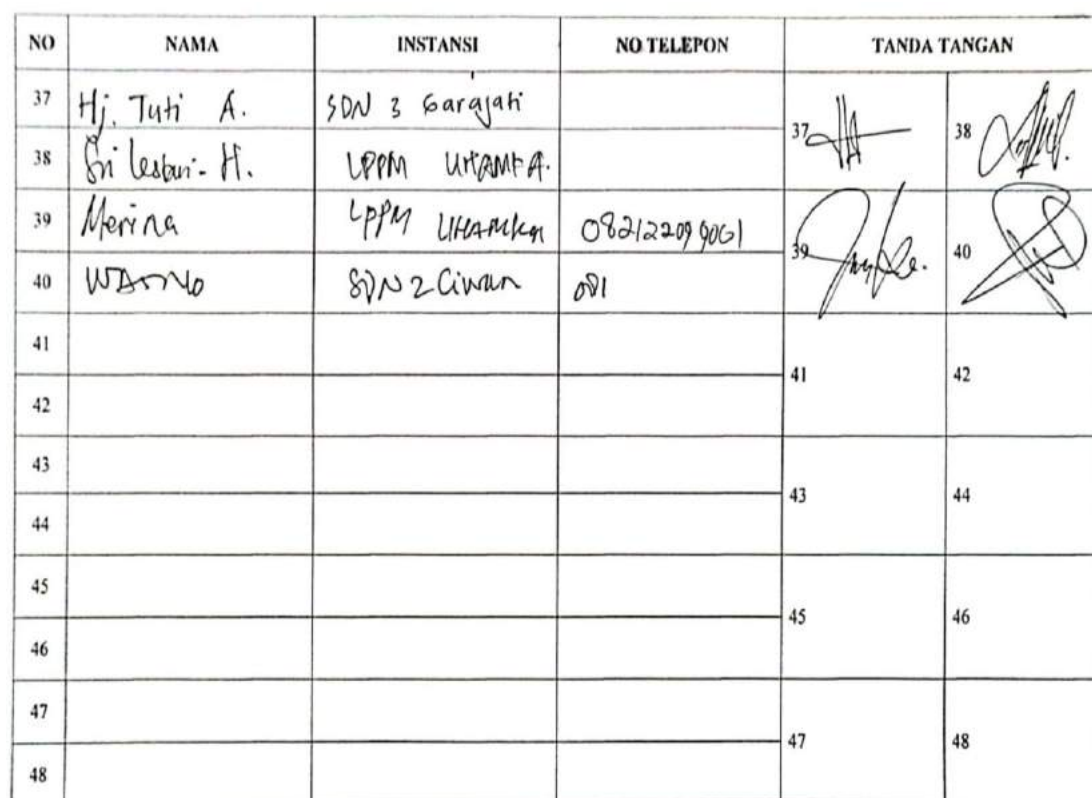 NO NAMA INSTANSI NO TELEPON TANDA TANGAN
37 Hj. Tuti A. SDN 3 Garajati 37 38
38 Sri Lestari. H. LPPM UHAMKA.
39 Merina LPPM UHAMKA 39 40
40 WARNO SDN 2 Ciwaru 081
41 41 42
42
43 43 44
44
45 45 46
46
47 47 48
48